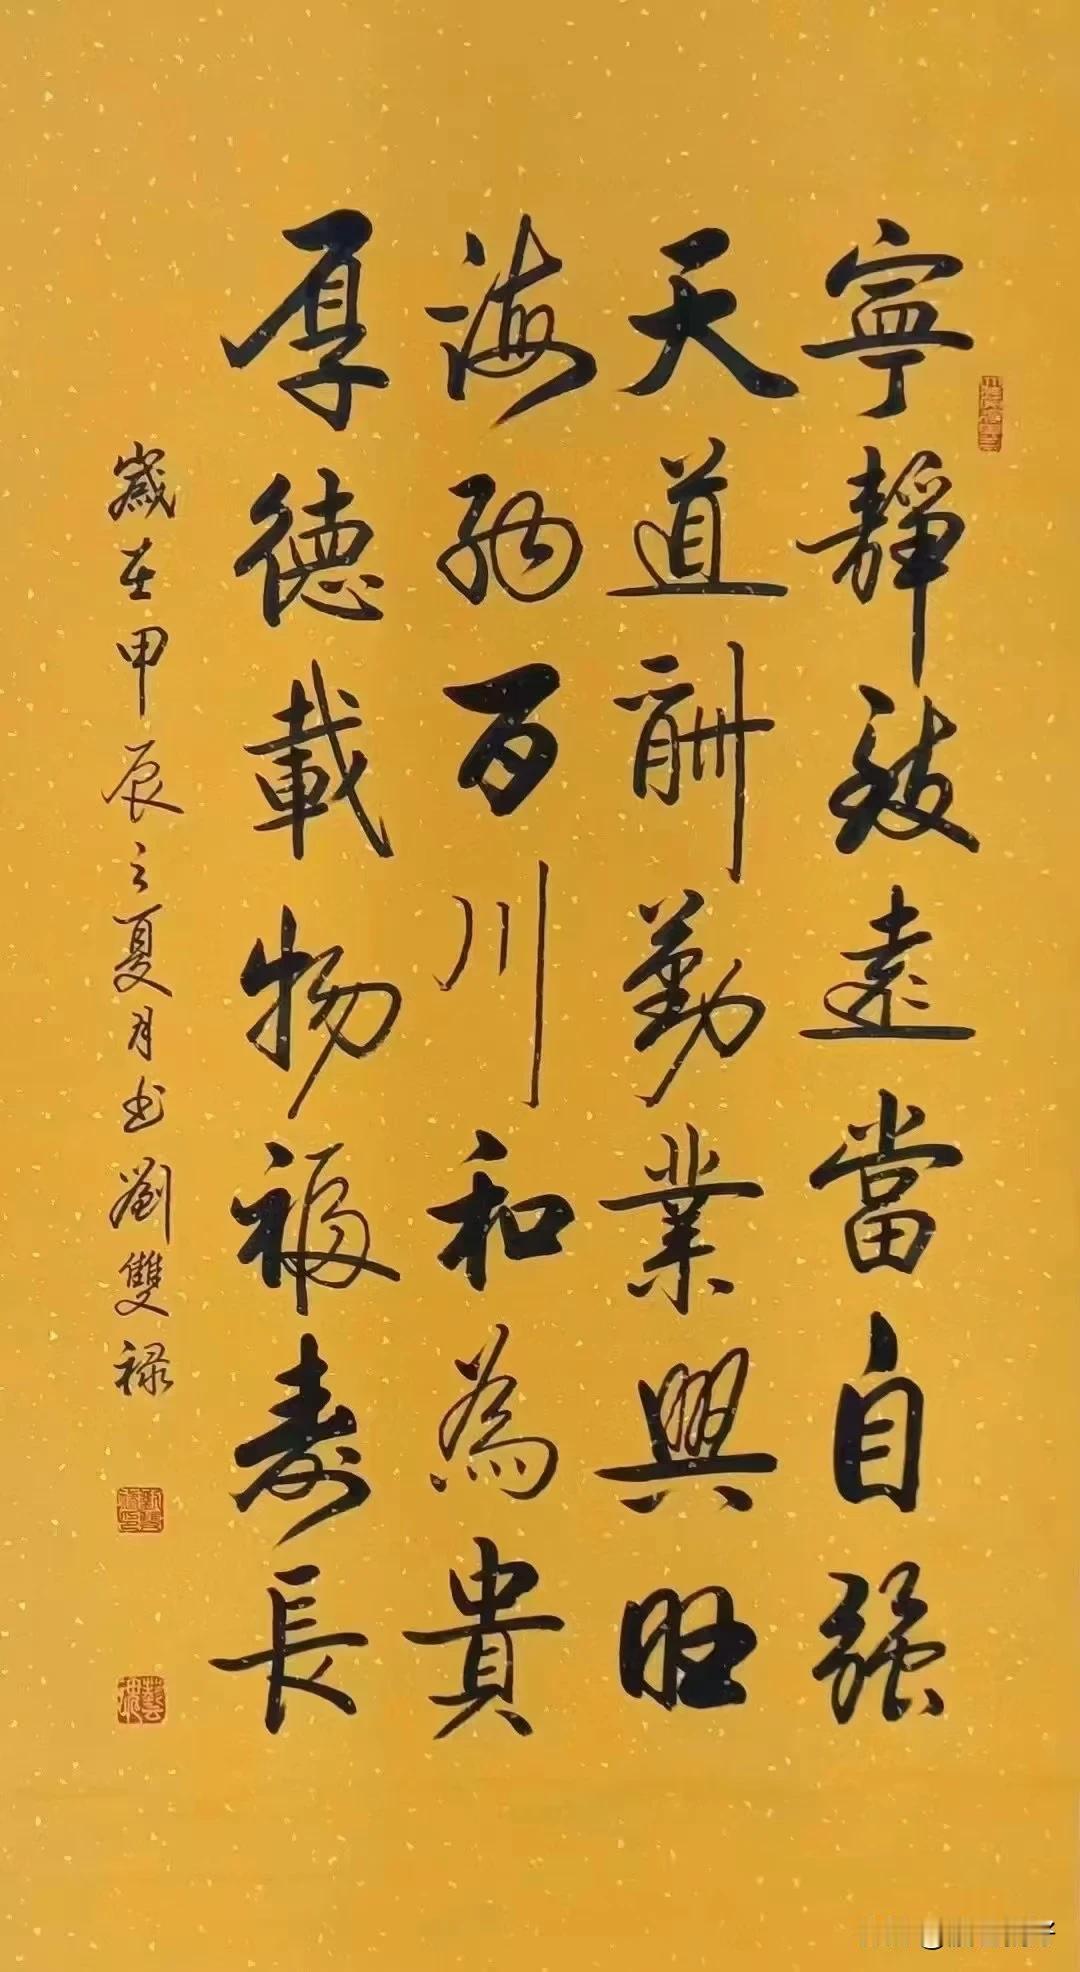 寧靜致遠當自強
天道酬勤業興旺
海納百川和為貴
厚德載物福壽長
歲在甲辰之夏月书劉雙祿